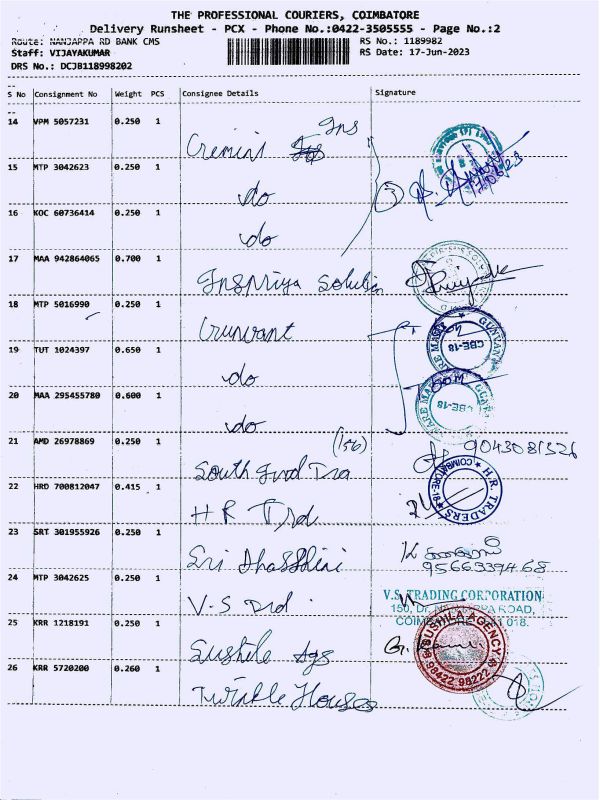 THE PROFESSIONAL COURIERS, COIMBATORE
Delivery Runsheet - PCX - Phone No.:0422-3505555 - Page No.:2
Route: NANJAPPA RD BANK CMS
RS No.: 1189982
Staff: VIJAYAKUMAR
RS Date: 17-Jun-2023
DRS No.: DCJB118998202
S No Consignment No Weight PCS Consignee Details Signature
14 VPM 5057231 0.250 1 Cremini Ins
15 MTP 3042623 0.250 1 do
16 KOC 60736414 0.250 1 do
17 MAA 942864065 0.700 1 Inspriya Solution
18 MTP 5016990 0.250 1 Gunvant
19 TUT 1024397 0.650 1 do
20 MAA 295455780 0.600 1 do
21 AMD 26978869 0.250 1 South Ind Tra (156) 9043081326
22 HRD 700812047 0.415 1 H R Trd H.R. TRADERS COIMBATORE-18
23 SRT 301955926 0.250 1 Sri Dhasshini 9566339468
24 MTP 3042625 0.250 1 V-S Trd V.S. TRADING CORPORATION
25 KRR 1218191 0.250 1 Sushile Ags SUSHILA AGENCY 98422 98222
26 KRR 5720200 0.260 1 Twinkle House